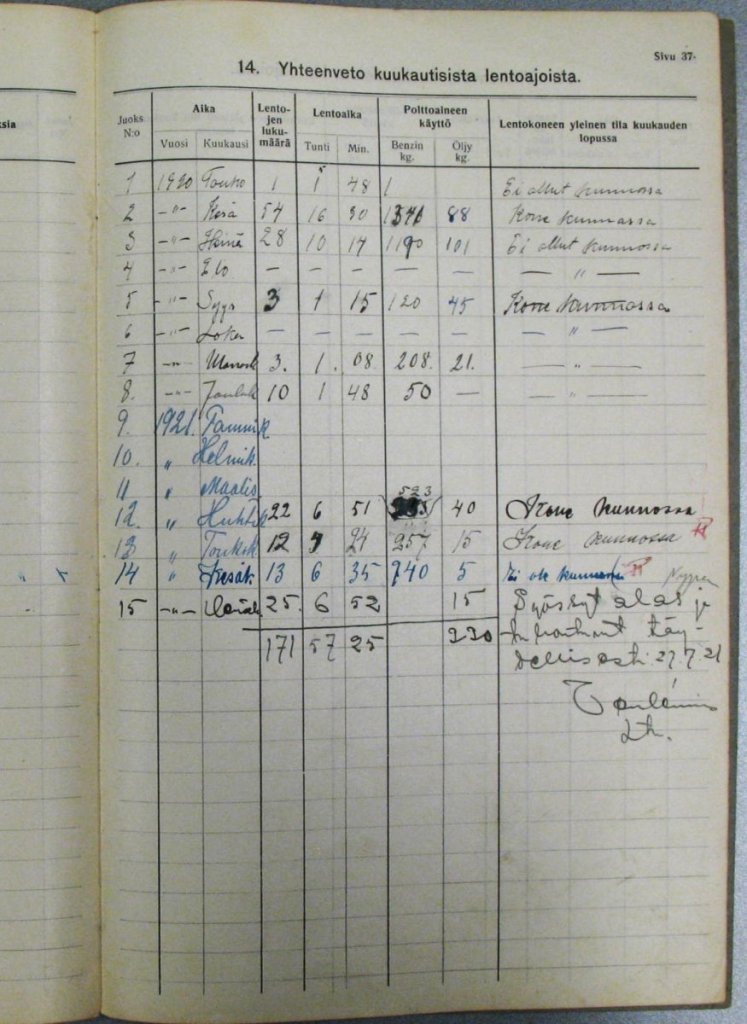 Sivu 37
14. Yhteenveto kuukautisista lentoajoista.
ksia
Juoks N:o
Aika
Vuosi Kuukausi
Lento-jen luku-määrä
Lentoaika
Tunti Min.
Polttoaineen käyttö
Benzin kg. Öljy kg.
Lentokoneen yleinen tila kuukauden lopussa
1 1920 Touko 1 1 48 Ei ollut kunnossa
2 -"- Kesä 54 16 30 88 Kone kunnossa
3 -"- Heinä 28 10 1190 101 Ei ollut kunnossa
4 -"- Elo — — — — — — " —
5 -"- Syys 3 1 15 120 45 Kone kunnossa
6 -"- Loka — — — — — — " —
7 -"- 3. 1. 08 208. 21. — " —
8. -"- Jouluk 10 1 48 50 — — " —
9. 1921. Tammik
10. " Helmik.
11 " Maalis
523
12. " Huhtik 22 6 51 40 Kone kunnossa
13 " Toukok 12 24 257 15 Kone kunnossa
14 " Kesäk 13 6 35 740 5 Ei ole kunnossa
15 -"- 25. 6 52 15 Syöksyt alas ja
171 57 25 330 täy-
dellisesti 27.7.21
Lth.